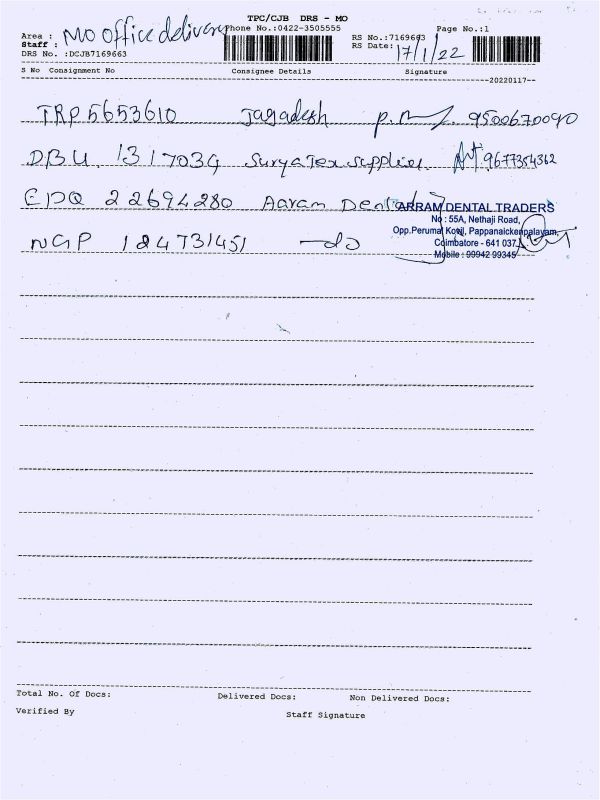 TPC/CJB DRS - MO
Area : MO office delivery Phone No.:0422-3505555 RS No.:7169663 Page No.:1
Staff : RS Date: 17/1/22
DRS No. :DCJB7169663
S No Consignment No Consignee Details Signature
20220117
TRP5653610 Jagadesh 9500670090
DBU 1317039 Surya Tex Supplier 9677354362
EDQ 22694280 Aaram Dental
ARRAM DENTAL TRADERS
No : 55A, Nethaji Road,
Opp.Perumal Kovil, Pappanaickenpalayam,
Coimbatore - 641 037
Mobile : 99942 99345
NGP 124731451 —do
Total No. Of Docs: Delivered Docs: Non Delivered Docs:
Verified By Staff Signature